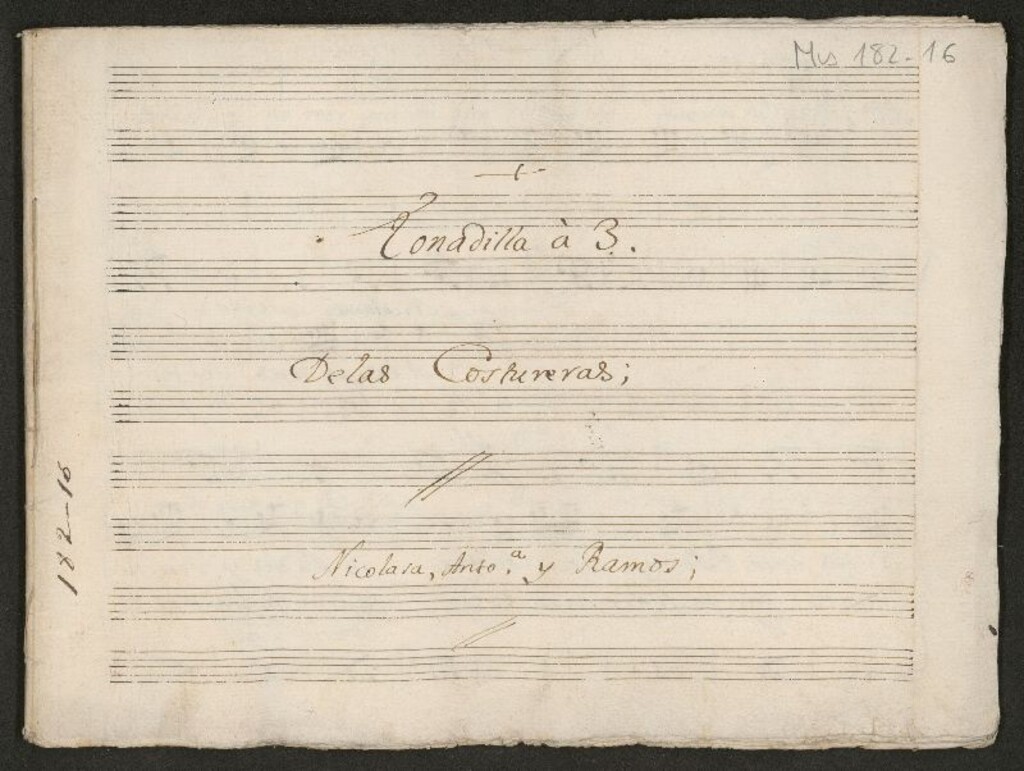 Mus 182-16
Tonadilla à 3.
Delas Costureras;
Nicolasa, Anto.ª y Ramos;
182-16